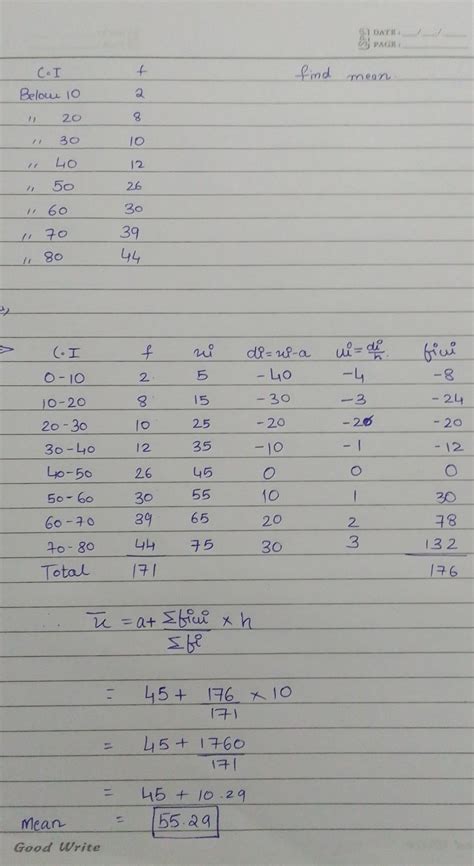 DATE: __/__/__
PAGE:
C.I f find mean.
Below 10 2
,, 20 8
,, 30 10
,, 40 12
,, 50 26
,, 60 30
,, 70 39
,, 80 44
⇒ C.I f xi di=xi-a ui=di/h fiui
0-10 2 5 -40 -4 -8
10-20 8 15 -30 -3 -24
20-30 10 25 -20 -2 -20
30-40 12 35 -10 -1 -12
40-50 26 45 0 0 0
50-60 30 55 10 1 30
60-70 39 65 20 2 78
70-80 44 75 30 3 132
Total 171 176
∴ x̄ = a+ Σfiui/Σfi × h
= 45 + 176/171 × 10
= 45 + 1760/171
= 45 + 10.29
Mean = 55.29
Good Write